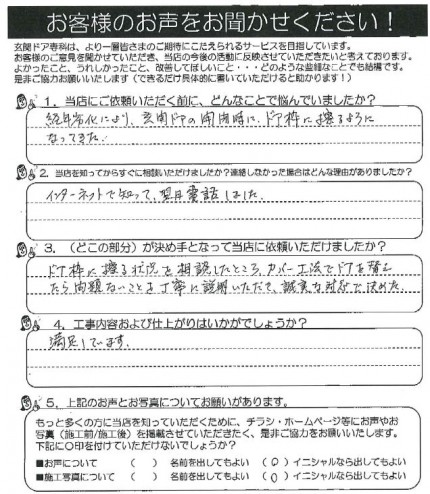 お客様のお声をお聞かせください！
玄関ドア専科は、より一層皆さまのご期待にこたえられるサービスを目指しています。
お客様のご意見を聞かせていただき、当店の今後の活動に反映させていただきたいと考えております。
よかったこと、うれしかったこと、改善してほしいこと・・・どのような些細なことでも結構です。
是非ご協力お願いいたします（できるだけ具体的に書いていただけると助かります！）
1．当店にご依頼いただく前に、どんなことで悩んでいましたか？
経年劣化により、玄関ドアの開閉時に、ドア枠に擦るように
なってきた。
2．当店を知ってからすぐに相談いただけましたか？連絡しなかった場合はどんな理由がありましたか？
インターネットで知って、翌日電話しました。
3．（どこの部分）が決め手となって当店に依頼いただけましたか？
ドア枠に擦る状況を相談したところ、カバー工法でドアを替え
たら問題ないことを丁寧に説明いただき、誠実な対応で決めた。
4．工事内容および仕上がりはいかがでしょうか？
満足しています。
5．上記のお声とお写真についてお願いがあります。
もっと多くの方に当店を知っていただくために、チラシ・ホームページ等にお声やお
写真（施工前/施工後）を掲載させていただきたく、是非ご協力をお願いいたします。
下記に○印を付けていただけないでしょうか？
■お声について （ ） 名前を出してもよい （○）イニシャルなら出してもよい
■施工写真について （ ） 名前を出してもよい （○）イニシャルなら出してもよい